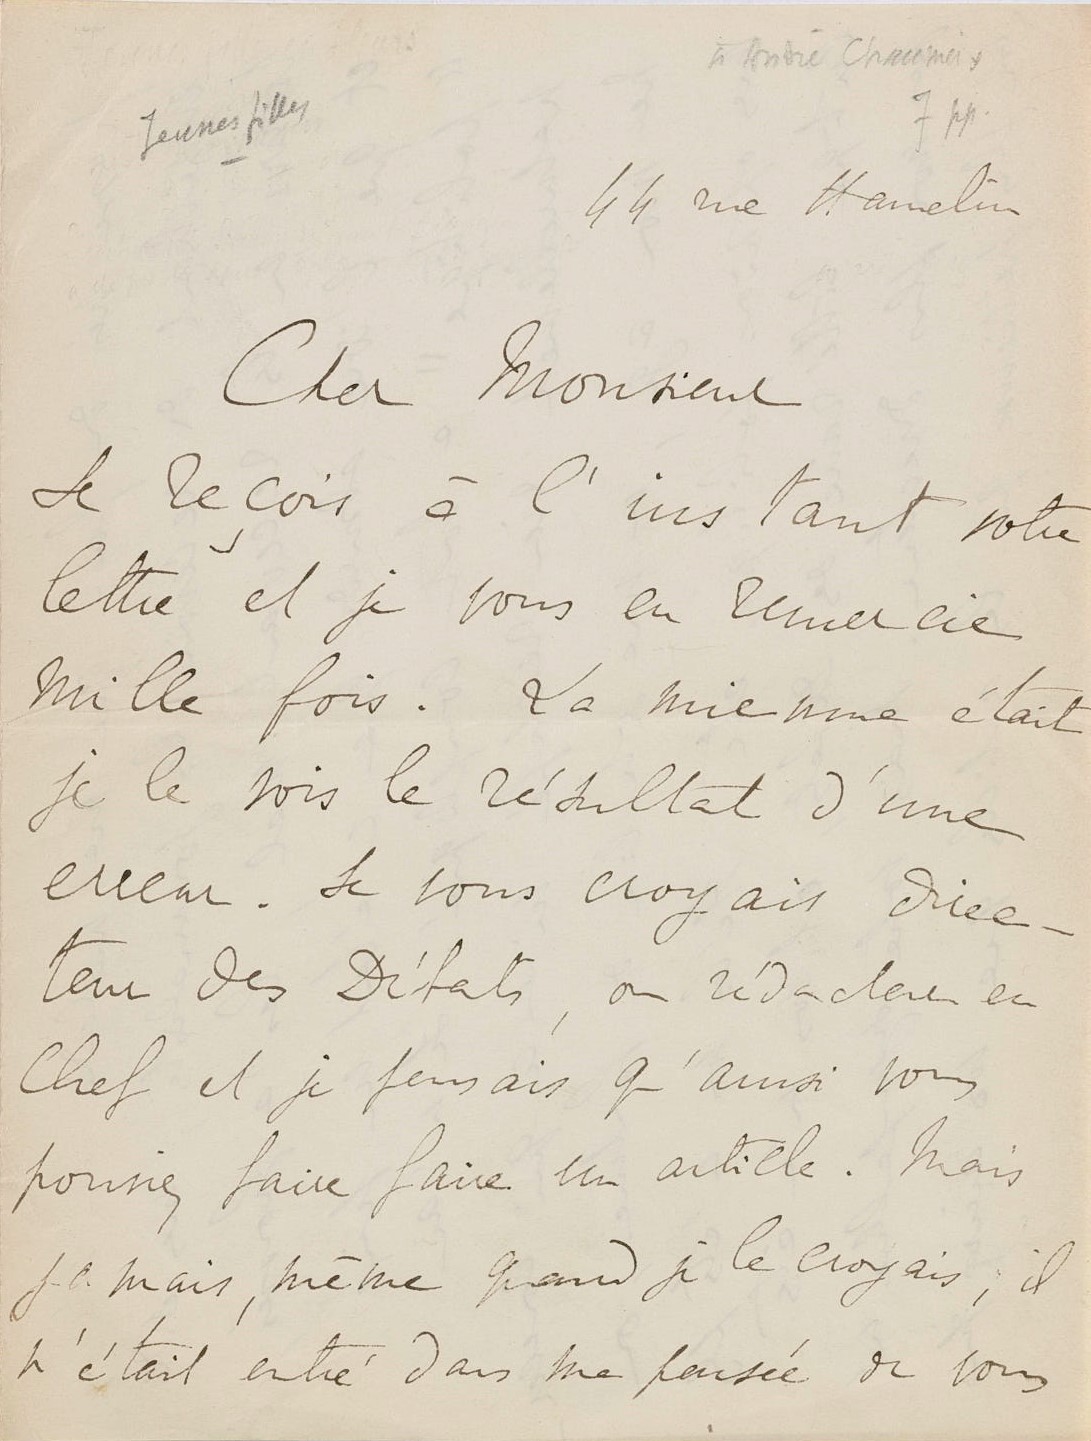 à André Chaumeix
Jeunes filles
7 pp.
44 rue Hamelin
Cher Monsieur
Je reçois à l'instant votre
lettre et je vous en remercie
mille fois. La mienne était
je le vois le résultat d'une
erreur. Je vous croyais direc-
teur des Débats, ou rédacteur en
chef et je pensais qu'ainsi vous
pouviez faire faire un article. Mais
jamais, même quand je le croyais, il
n'était entré dans ma pensée de vous